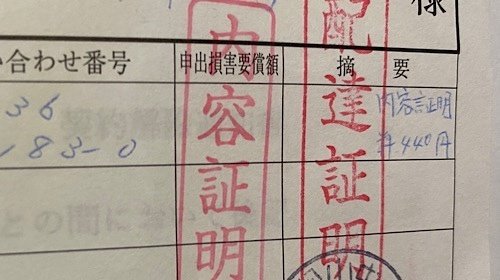 様
い合わせ番号
申出損害要償額
摘要
36
183-0
内容証明
¥440円
内容証明
配達証明
との間におい